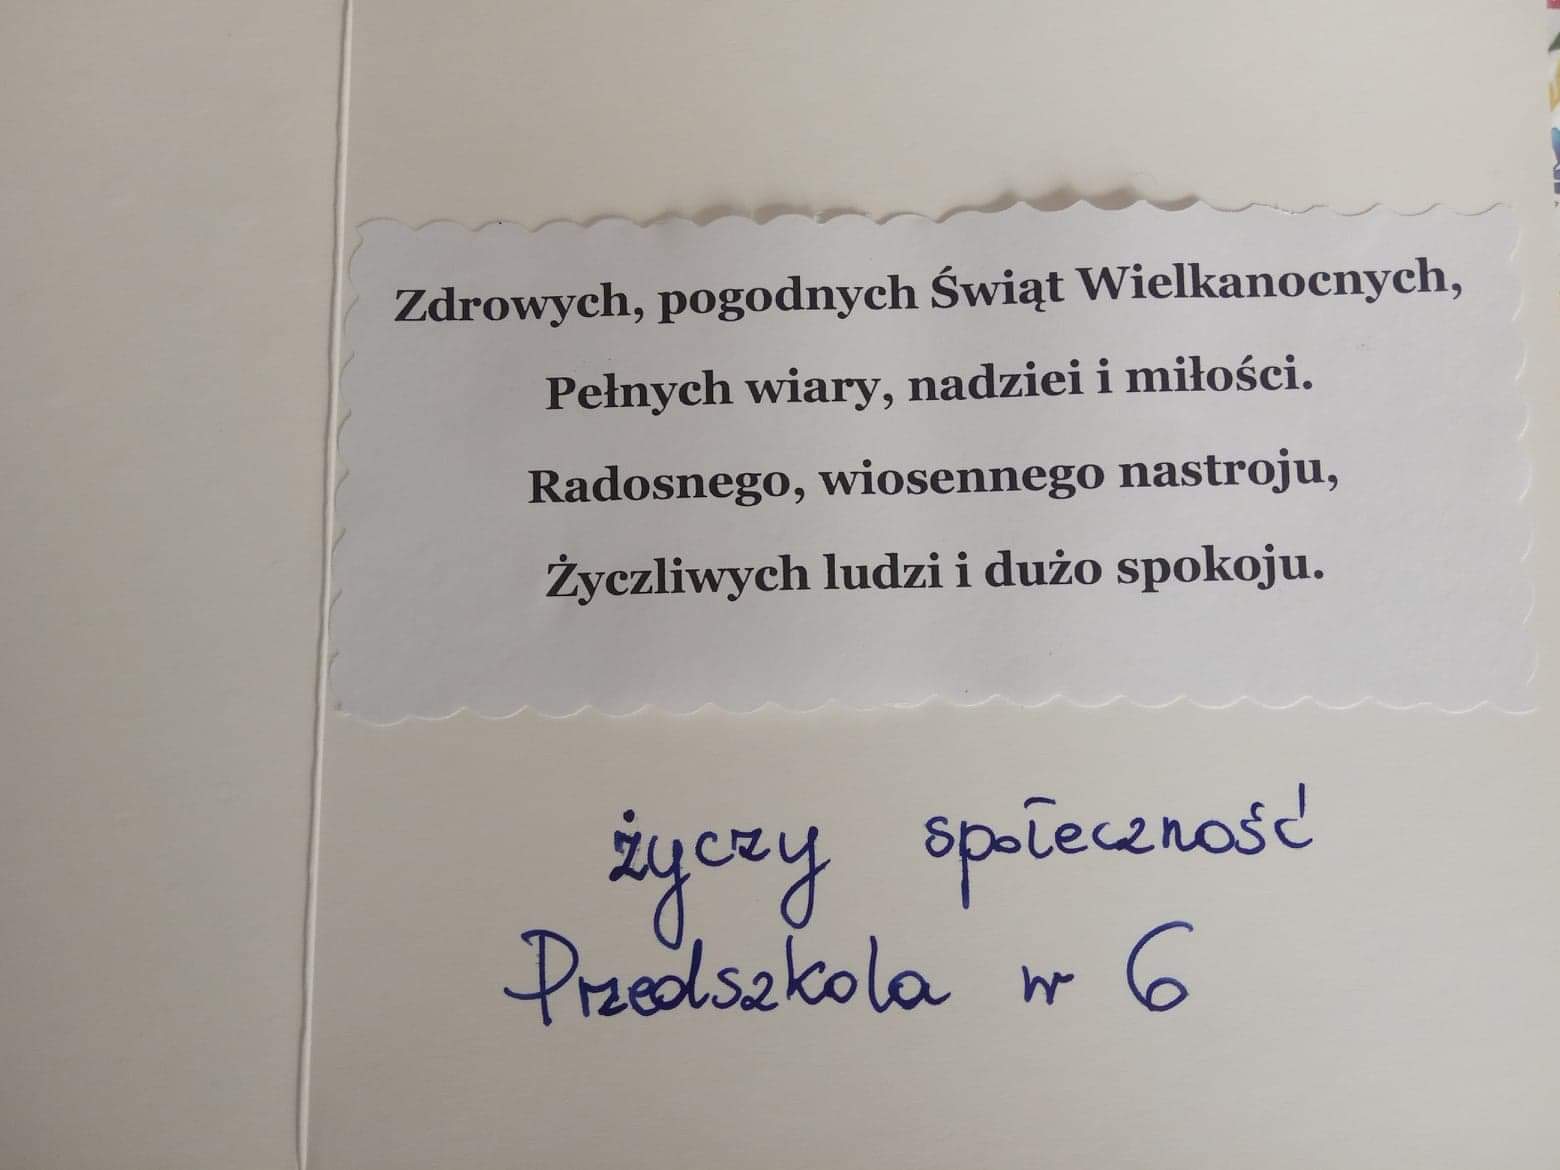 Zdrowych, pogodnych Świąt Wielkanocnych,
Pełnych wiary, nadziei i miłości.
Radosnego, wiosennego nastroju,
Życzliwych ludzi i dużo spokoju.
życzy społeczność
Przedszkola nr 6